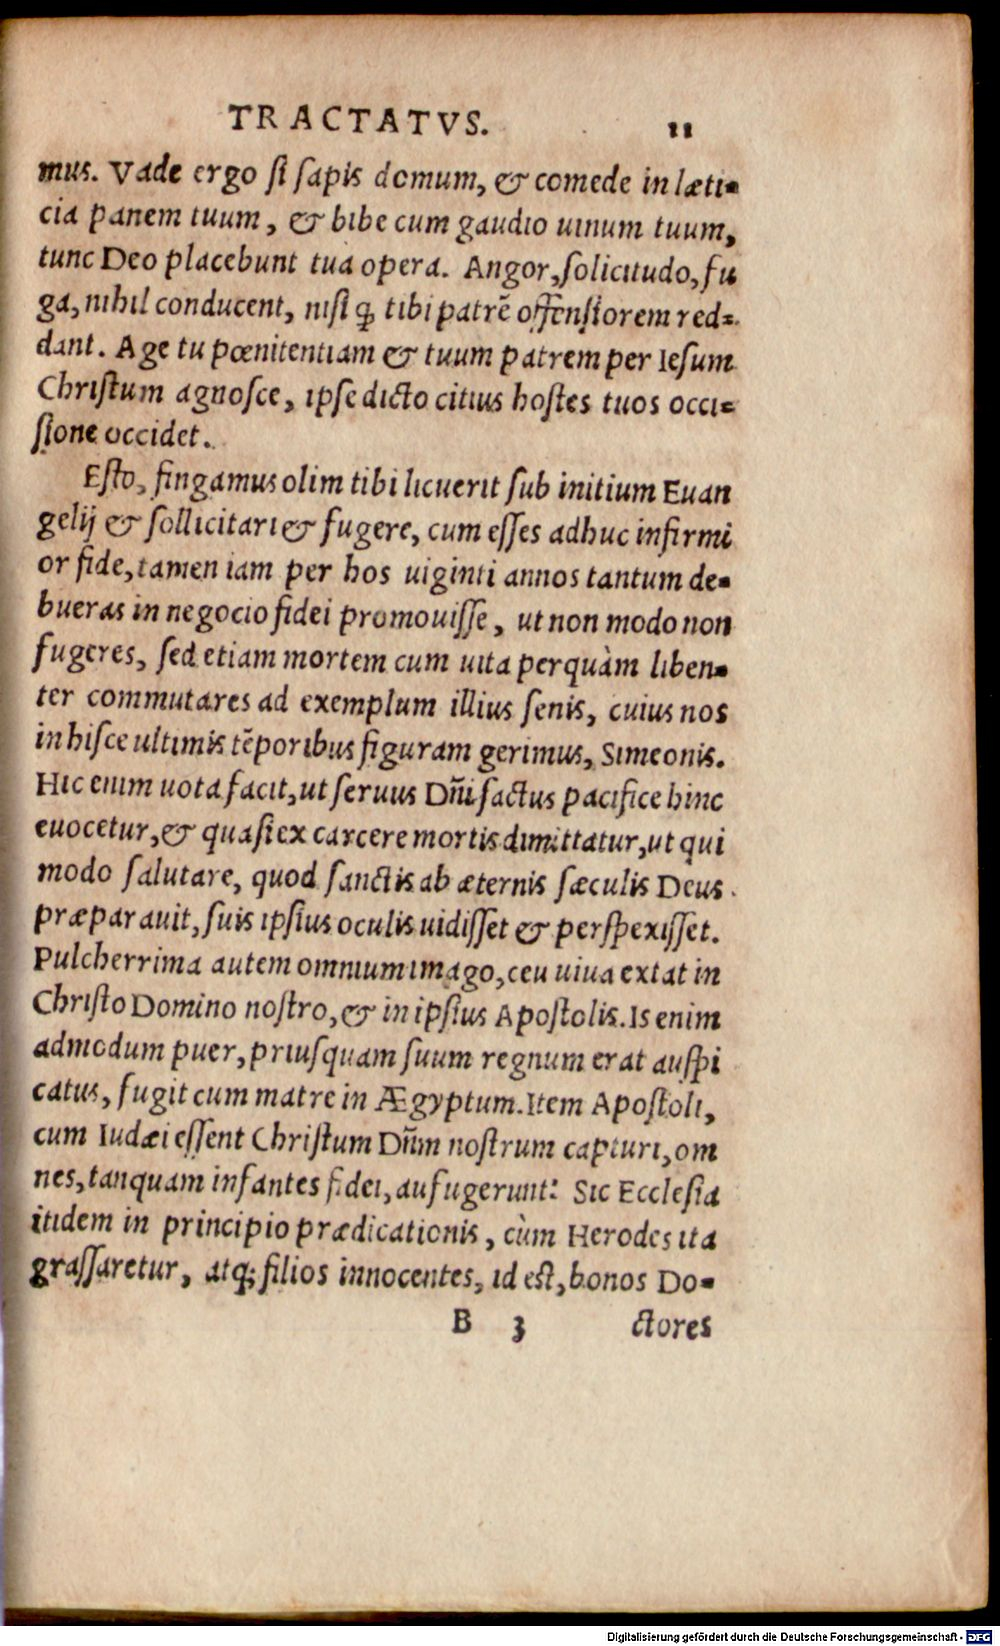 TRACTATVS. 11
mus. Vade ergo si sapis domum, & comede in læti=
cia panem tuum, & bibe cum gaudio uinum tuum,
tunc Deo placebunt tua opera. Angor, solicitudo, fu
ga, nihil conducent, nisi ꝙ tibi patrẽ offensiorem red=
dant. Age tu pœnitentiam & tuum patrem per Iesum
Christum agnosce, ipse dicto citius hostes tuos occi=
sione occidet.
Esto, fingamus olim tibi licuerit sub initium Euan
gelij & sollicitari & fugere, cum esses adhuc infirmi
or fide, tamen iam per hos uiginti annos tantum de=
bueras in negocio fidei promouisse, ut non modo non
fugeres, sed etiam mortem cum uita perquàm liben=
ter commutares ad exemplum illius senis, cuius nos
in hisce ultimis tẽporibus figuram gerimus, Simeonis.
Hic enim uota facit, ut seruus Dñi factus pacifice hinc
euocetur, & quasi ex carcere mortis dimittatur, ut qui
modo salutare, quod sanctis ab æternis sæculis Deus
præparauit, suis ipsius oculis uidisset & perspexisset.
Pulcherrima autem omnium imago, ceu uiua extat in
Christo Domino nostro, & in ipsius Apostolis. Is enim
admodum puer, priusquam suum regnum erat auspi
catus, fugit cum matre in Ægyptum. Item Apostoli,
cum Iudæi essent Christum Dñm nostrum capturi, om
nes, tanquam infantes fidei, aufugerunt: Sic Ecclesia
itidem in principio prædicationis, cùm Herodes ita
grassaretur, atq; filios innocentes, id est, bonos Do=
B 3 ctores
Digitalisierung gefördert durch die Deutsche Forschungsgemeinschaft - DFG